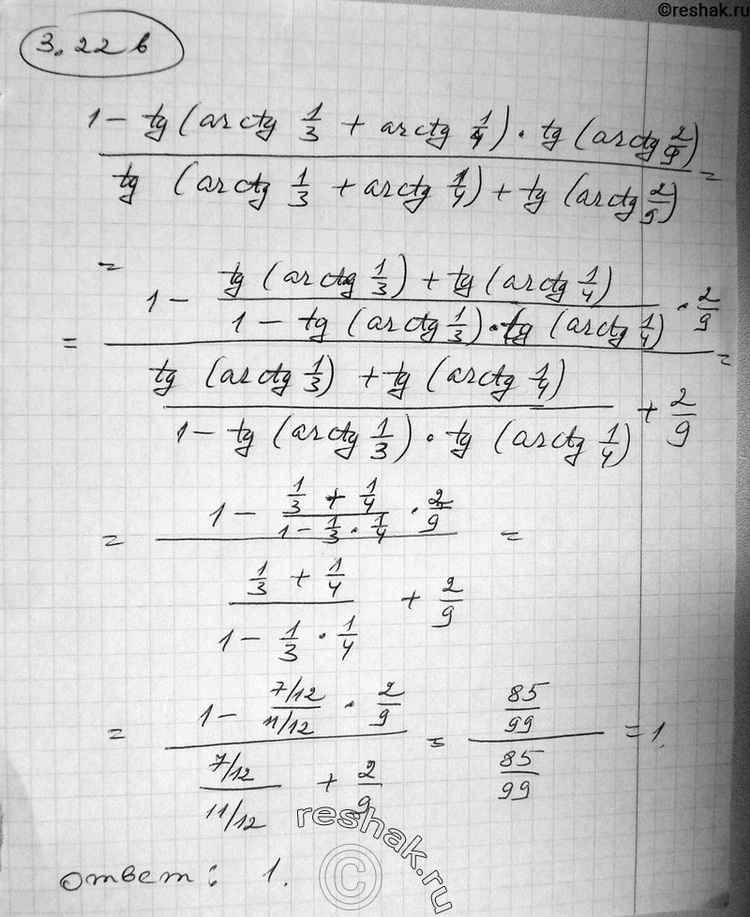 ©reshak.ru
3.22 в
1 - tg (arctg 1/3 + arctg 1/4) · tg (arctg 2/9)
tg (arctg 1/3 + arctg 1/4) + tg (arctg 2/9) =
=
1 - tg (arctg 1/3) + tg (arctg 1/4)
1 - tg (arctg 1/3) · tg (arctg 1/4) · 2/9
= =
tg (arctg 1/3) + tg (arctg 1/4)
1 - tg (arctg 1/3) · tg (arctg 1/4) + 2/9
= 1 - (1/3 + 1/4)/(1 - 1/3 · 1/4) · 2/9 =
(1/3 + 1/4)/(1 - 1/3 · 1/4) + 2/9
= 1 - (7/12)/(11/12) · 2/9 = 85/99 = 1.
(7/12)/(11/12) + 2/9 85/99
ответ: 1.
reshak.ru
©